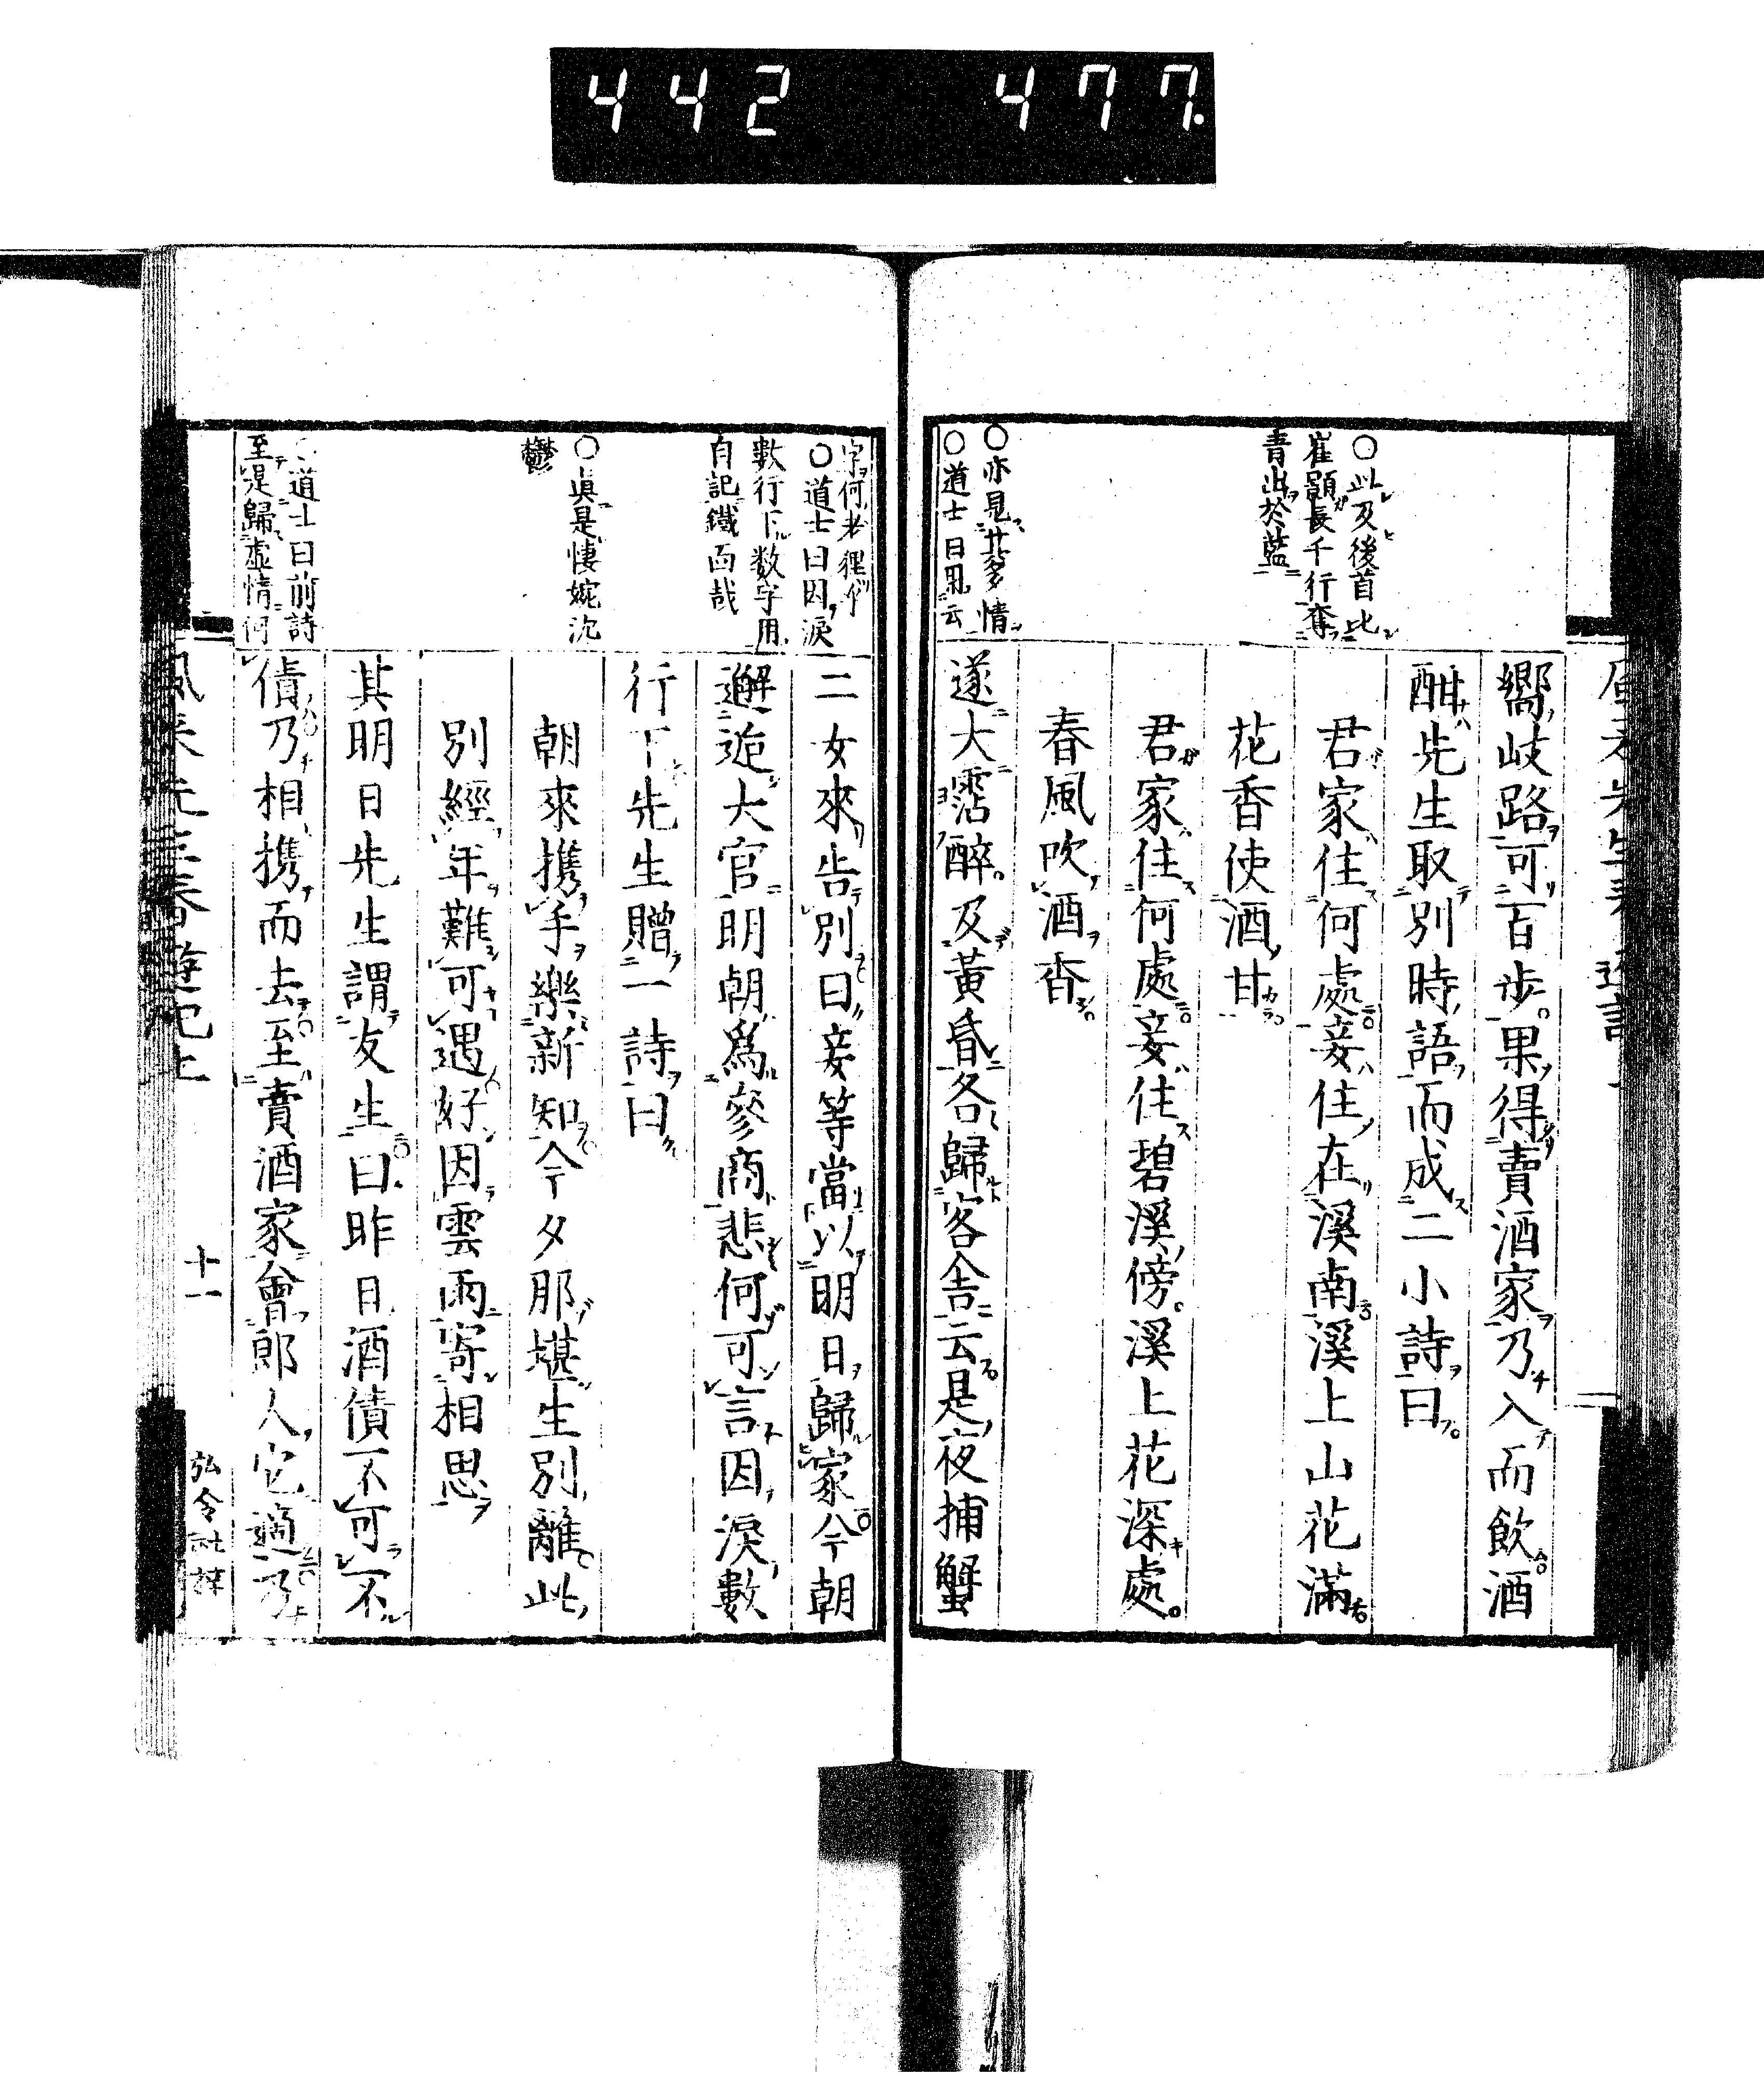 442 477.
○此及後首比
崔顥長千行奪
青出於藍
○亦見廿多情
○道士曰用云
嚮岐路可百步果得賣酒家乃入而飲酒
酣先生取別時語而成二小詩曰
君家住何處妾住在溪南溪上山花滿
花香使酒甘
君家住何處妾住碧溪傍溪上花深處
春風吹酒香
遂大霑醉及黃昏各歸客舎云是夜捕蟹
字何老狸
○道士曰因淚
數行下数字用
自記鐵面哉
○眞是悽婉沈
鬱
道士曰前詩
至是歸虛情何
二女來告別曰妾等當以明日歸家今朝
邂逅大官明朝爲參商悲何可言因淚數
行下先生贈一詩曰
朝來攜手樂新知今夕那堪生別離此
別經年難可遇好因雲雨寄相思
其明日先生謂友生曰昨日酒債不可不
債乃相攜而去至賣酒家會郎人它適乃
風來先生春遊記上
十一
弘令社梓